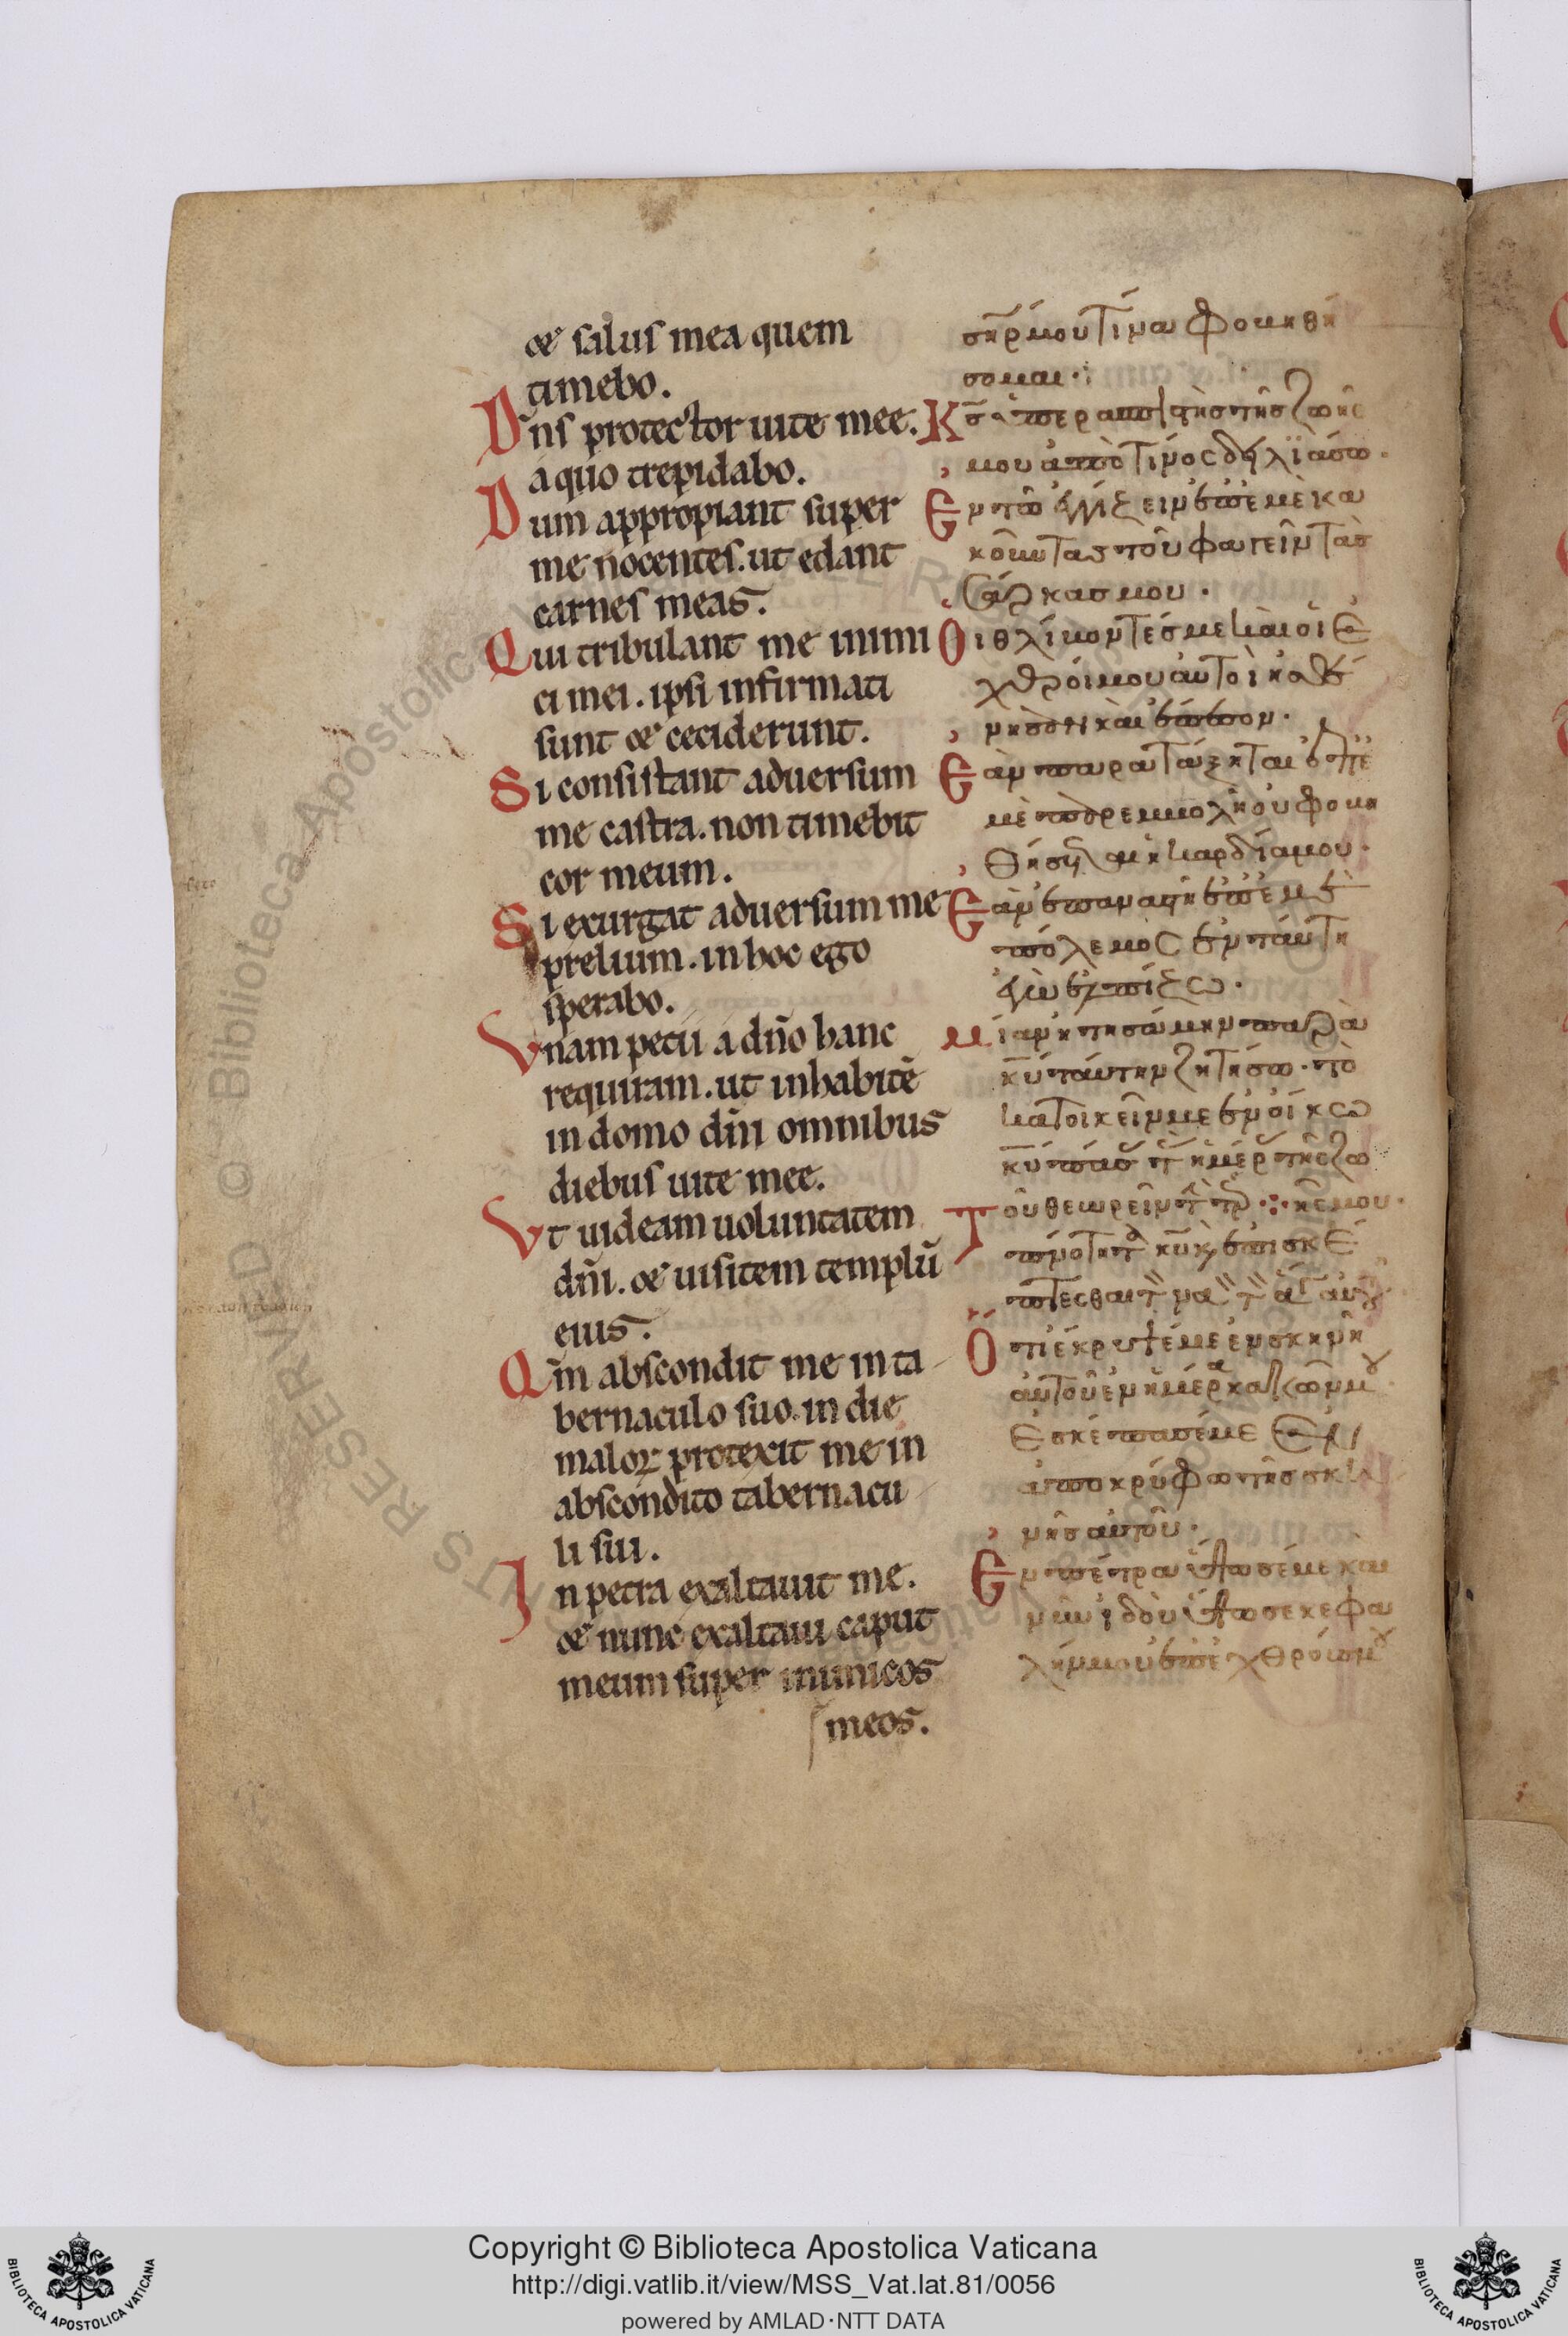 & salus mea quem
timebo.
Dn̄s protector uite mee.
a quo trepidabo.
Dum appropiant super
me nocentes. ut edant
carnes meas.
Qui tribulant me inimi
ci mei. ipsi infirmati
sunt & ceciderunt.
Si consistant aduersum
me castra. non timebit
cor meum.
Si exurgat aduersum me
prelium. in hoc ego
sperabo.
Vnam petii a dn̄o hanc
requiram. ut inhabitē
in domo dn̄i omnibus
diebus uite mee.
Vt uideam uoluntatem
dn̄i. & uisitem templū
eius.
Qm̄ abscondit me in ta
bernaculo suo. in die
maloꝝ protexit me in
abscondito tabernacu
li sui.
In petra exaltauit me.
& nunc exaltauit caput
meum super inimicos
meos.
σηρ μου τίνα φοβηθή
σομαι·
Κς̄ ὑπερασπιστὴς τῆς ζωῆς
μου ἀπὸ τίνος δηλϊάσω·
Ἐν τῶ ἐγγίζειν ἐπ ἐμὲ κα
κοῦντας τοῦ φαγεῖν τὰς
σάρκας μου·
Ὁι θλίβοντές με καὶ οἱ ἐ
χθρόι μου ἀυτοὶ ἠσθέ
νησαν καὶ ἔπεσον·
Ἐὰν παρατάξηται ἐπ ἐ
μὲ παρεμβολὴ ὀυ φοβη
θήσεται ἡ καρδία μου·
Ἐὰν ἐπαναστῆ ἐπ ἐμὲ
πόλεμος ἐν ταύτη
ἐγὼ ἐλπίζω·
Μίαν ἠτησάμην παρὰ
κ̄ύ ταύτην ζητήσω· τὸ
κατοικεῖν με ἐν οἴκω
Τοῦ θεωρεῖν
Ὅτι ἔκρυψέ με ἐν σκηνῆ
ἀυτοῦ ἐν ἡμέρα κακῶν μου·
Ἐσκέπασέ με ἐν
ἀποκρύφω τῆς σκη
νῆς αυτοῦ·
Ἐν πέτρα ὕψωσέ με καὶ
νῦν ἰδοὺ ὕψωσε κεφα
λήν μου ἐπ ἐχθρόυς μου
Copyright © Biblioteca Apostolica Vaticana
http://digi.vatlib.it/view/MSS_Vat.lat.81/0056
powered by AMLAD·NTT DATA
BIBLIOTECA APOSTOLICA VATICANA
BIBLIOTECA APOSTOLICA VATICANA